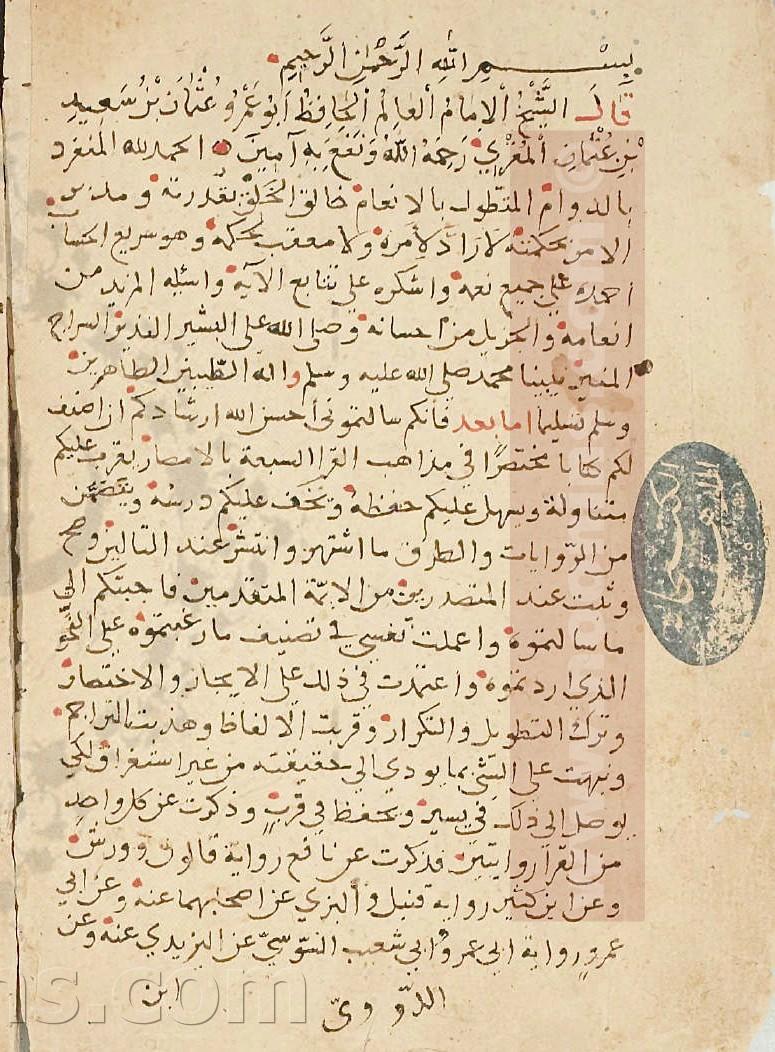 بِسْمِ اللهِ الرَّحْمٰنِ الرَّحِيمِ
قَالَ الشَّيْخُ الْإِمَامُ الْعَالِمُ الْحَافِظُ أَبُو عَمْرٍو عُثْمَانُ بْنُ سَعِيدِ
بْنِ عُثْمَانَ الْمُقْرِي رَحِمَهُ اللهُ وَنَفَعَ بِهِ آمِينَ الحمد لله المنفرد
بالدوام المتطول بالانعام خالق الخلق بقدرته ومدبر
الامر بحكمته لا رادّ لامره ولا معقب لحكمه وهو سريع الحساب
احمده على جميع نعمه واشكره على تتابع الآيه واسئله المزيد من
انعامه والجزيل من احسانه وصلى الله على البشير النذير السراج
المنير نبينا محمد صلى الله عليه وسلم واله الطيبين الطاهرين
وسلم تسليما اما بعد فانكم سالتموني أحسن الله ارشادكم ان اصنف
لكم كتابا مختصرًا في مذاهب القرا السبعة بالامصار يقرب عليكم
متناولة ويسهل عليكم حفظه ويخف عليكم درسه ويتضمن
من الرّوايات والطرق ما اشتهر وانتشر عند التالين وصح
وثبت عند المتصدرين من الايمّة المتقدمين فاجبتكم الى
ما سالتموه واعملت نفسي في تصنيف ما رغبتموه على النحو
الذي اردتموه واعتمدت في ذلك على الايجاز والاختصار
وترك التطويل والتكرار وقربت الالفاظ وهذبت التراجم
ونبهت على الشئ بما يودي الى حقيقته من غير استغراق لكي
يوصل الى ذلك في يسير ويحفظ في قرب وذكرت عن كل واحد
من القرا روايتين فذكرت عن نافع رواية قالون وورش
وعن ابن كثير رواية قنبل والبزي عن اصحابهما عنه وعن ابي
عمرو رواية ابي عمرو وابي شعيب السّوسيّ عن اليزيدي عنه وعن
ابن
الدّوريّ
ns.com